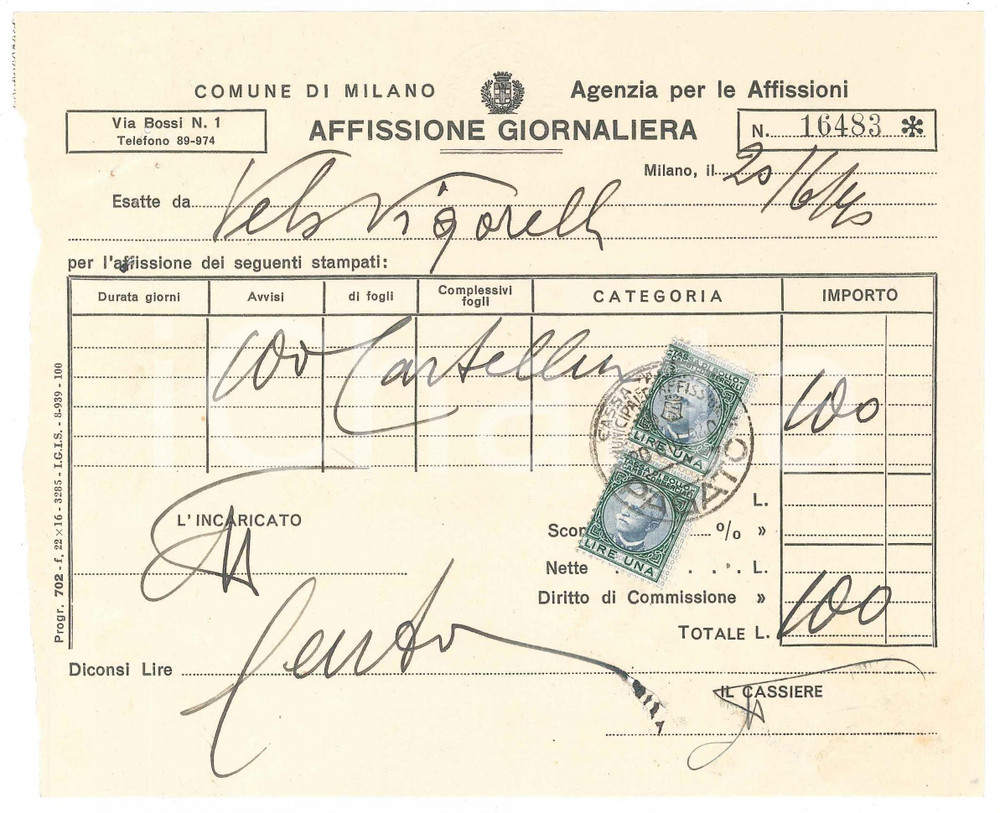 COMUNE DI MILANO Agenzia per le Affissioni
Via Bossi N. 1
Telefono 89-974
AFFISSIONE GIORNALIERA
N. 16483 *
Milano, il 20/6/40
Esatte da Velo Vigorelli
per l'affissione dei seguenti stampati:
Durata giorni Avvisi di fogli Complessivi fogli CATEGORIA IMPORTO
100 Cartellini 100
CASSA
PAGATO
LIRE UNA
LIRE UNA
L.
L'INCARICATO
% »
Nette L.
Diritto di Commissione »
TOTALE L. 100
Diconsi Lire Cento
IL CASSIERE
Progr. 702 - f. 22×16 - 3285 - I.G.I.S. - 8-939 - 100